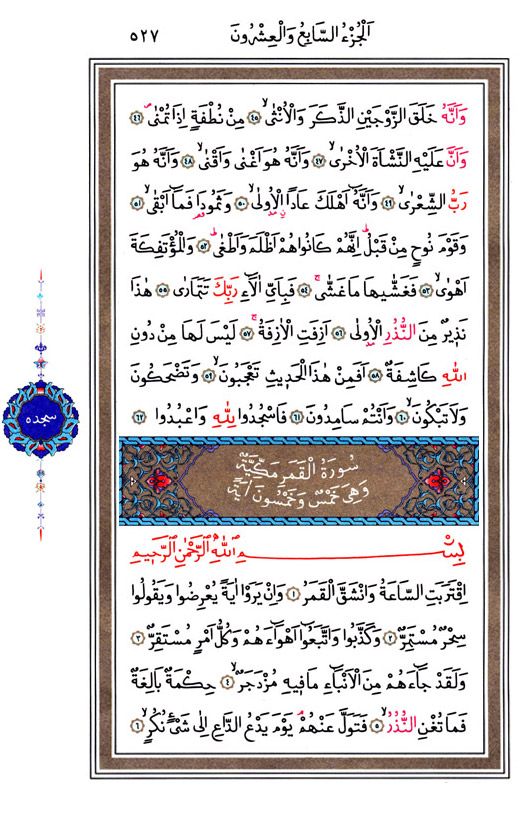 اَلْجُزْءُ السَّابِعُ وَالْعِشْرُونَ ٥٢٧
وَاَنَّهُ خَلَقَ الزَّوْجَيْنِ الذَّكَرَ وَالْاُنْثٰىۙ ﴿٤٥﴾ مِنْ نُطْفَةٍ اِذَا تُمْنٰىۖ ﴿٤٦﴾
وَاَنَّ عَلَيْهِ النَّشْاَةَ الْاُخْرٰىۙ ﴿٤٧﴾ وَاَنَّهُ هُوَ اَغْنٰى وَاَقْنٰىۙ ﴿٤٨﴾ وَاَنَّهُ هُوَ
رَبُّ الشِّعْرٰىۙ ﴿٤٩﴾ وَاَنَّهُٓ اَهْلَكَ عَادًاۨ الْاُولٰىۙ ﴿٥٠﴾ وَثَمُودَا۬ فَمَٓا اَبْقٰىۙ ﴿٥١﴾
وَقَوْمَ نُوحٍ مِنْ قَبْلُۜ اِنَّهُمْ كَانُوا هُمْ اَظْلَمَ وَاَطْغٰىۜ ﴿٥٢﴾ وَالْمُؤْتَفِكَةَ
اَهْوٰىۙ ﴿٥٣﴾ فَغَشّٰيهَا مَا غَشّٰىۚ ﴿٥٤﴾ فَبِاَيِّ اٰلَٓاءِ رَبِّكَ تَتَمَارٰى ﴿٥٥﴾ هٰذَا
نَذِيرٌ مِنَ النُّذُرِ الْاُولٰى ﴿٥٦﴾ اَزِفَتِ الْاٰزِفَةُۚ ﴿٥٧﴾ لَيْسَ لَهَا مِنْ دُونِ
اللّٰهِ كَاشِفَةٌۜ ﴿٥٨﴾ اَفَمِنْ هٰذَا الْحَدِيثِ تَعْجَبُونَۙ ﴿٥٩﴾ وَتَضْحَكُونَ
وَلَا تَبْكُونَۙ ﴿٦٠﴾ وَاَنْتُمْ سَامِدُونَ ﴿٦١﴾ فَاسْجُدُوا لِلّٰهِ وَاعْبُدُوا ﴿٦٢﴾
سجده
سُورَةُ الْقَمَرِ مَكِّيَّةٌ
وَهِيَ خَمْسٌ وَخَمْسُونَ اٰيَةً
بِسْمِ اللّٰهِ الرَّحْمٰنِ الرَّحِيمِ
اِقْتَرَبَتِ السَّاعَةُ وَانْشَقَّ الْقَمَرُ ﴿١﴾ وَاِنْ يَرَوْا اٰيَةً يُعْرِضُوا وَيَقُولُوا
سِحْرٌ مُسْتَمِرٌّ ﴿٢﴾ وَكَذَّبُوا وَاتَّبَعُٓوا اَهْوَٓاءَهُمْ وَكُلُّ اَمْرٍ مُسْتَقِرٌّ ﴿٣﴾
وَلَقَدْ جَٓاءَهُمْ مِنَ الْاَنْبَٓاءِ مَا فِيهِ مُزْدَجَرٌۙ ﴿٤﴾ حِكْمَةٌ بَالِغَةٌ
فَمَا تُغْنِ النُّذُرُۙ ﴿٥﴾ فَتَوَلَّ عَنْهُمْۢ يَوْمَ يَدْعُ الدَّاعِ اِلٰى شَيْءٍ نُكُرٍۙ ﴿٦﴾